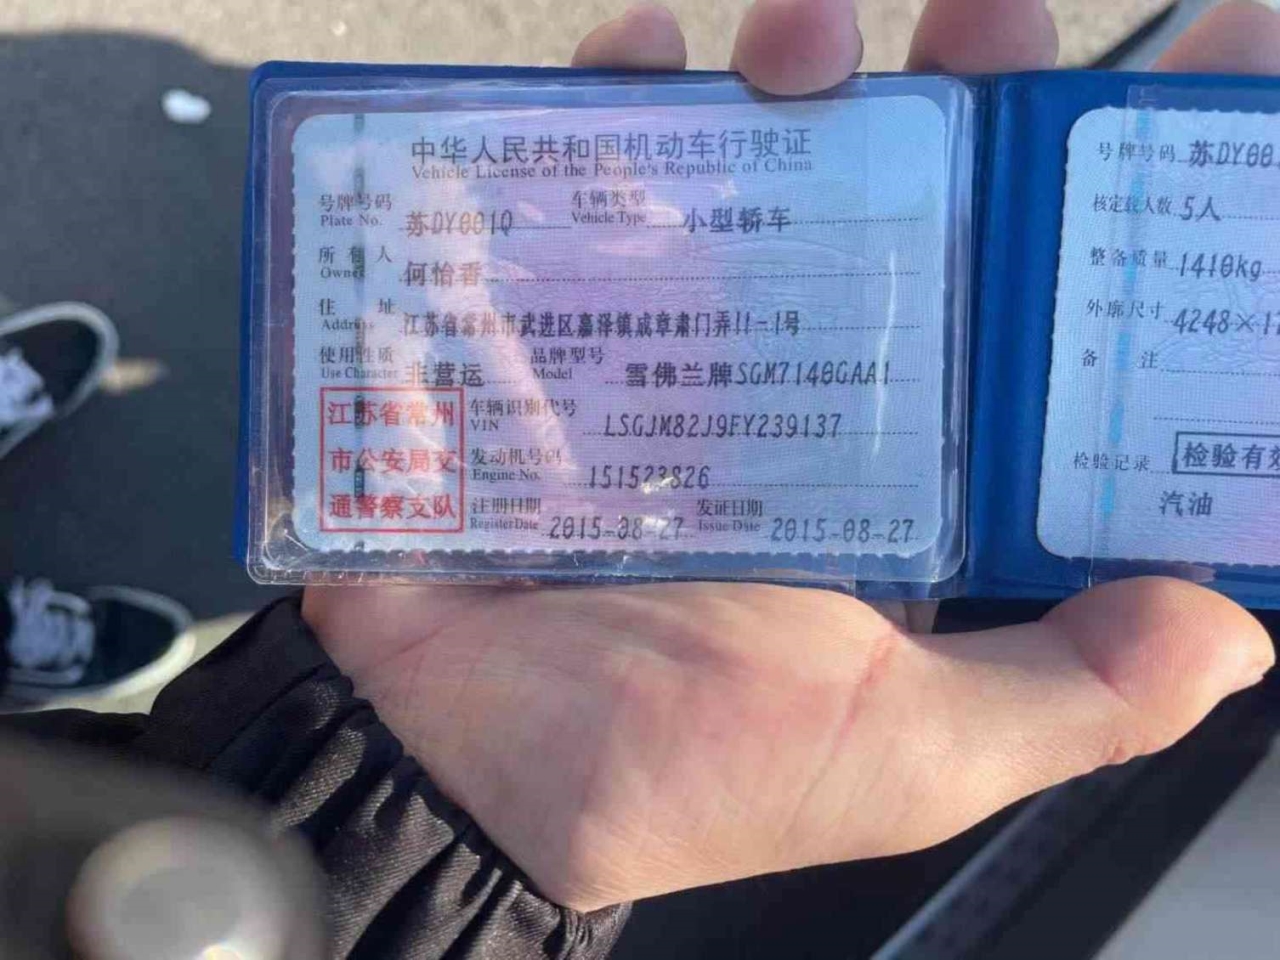 中华人民共和国机动车行驶证
Vehicle License of the People's Republic of China
号牌号码 苏DY001Q 车辆类型 小型轿车
Plate No. Vehicle Type
所有人 何怡香
Owner
住址 江苏省常州市武进区嘉泽镇成章肃门弄11-1号
Address
使用性质 非营运 品牌型号 雪佛兰牌SGM7140GAA1
Use Character Model
江苏省常州
市公安局交
通警察支队
车辆识别代号 LSGJM82J9FY239137
VIN
发动机号码 151523826
Engine No.
注册日期 2015-08-27 发证日期 2015-08-27
Register Date Issue Date
号牌号码 苏DY00
核定载人数 5人
整备质量 1410kg
外廓尺寸 4248×1
备注
检验记录 检验有效
汽油